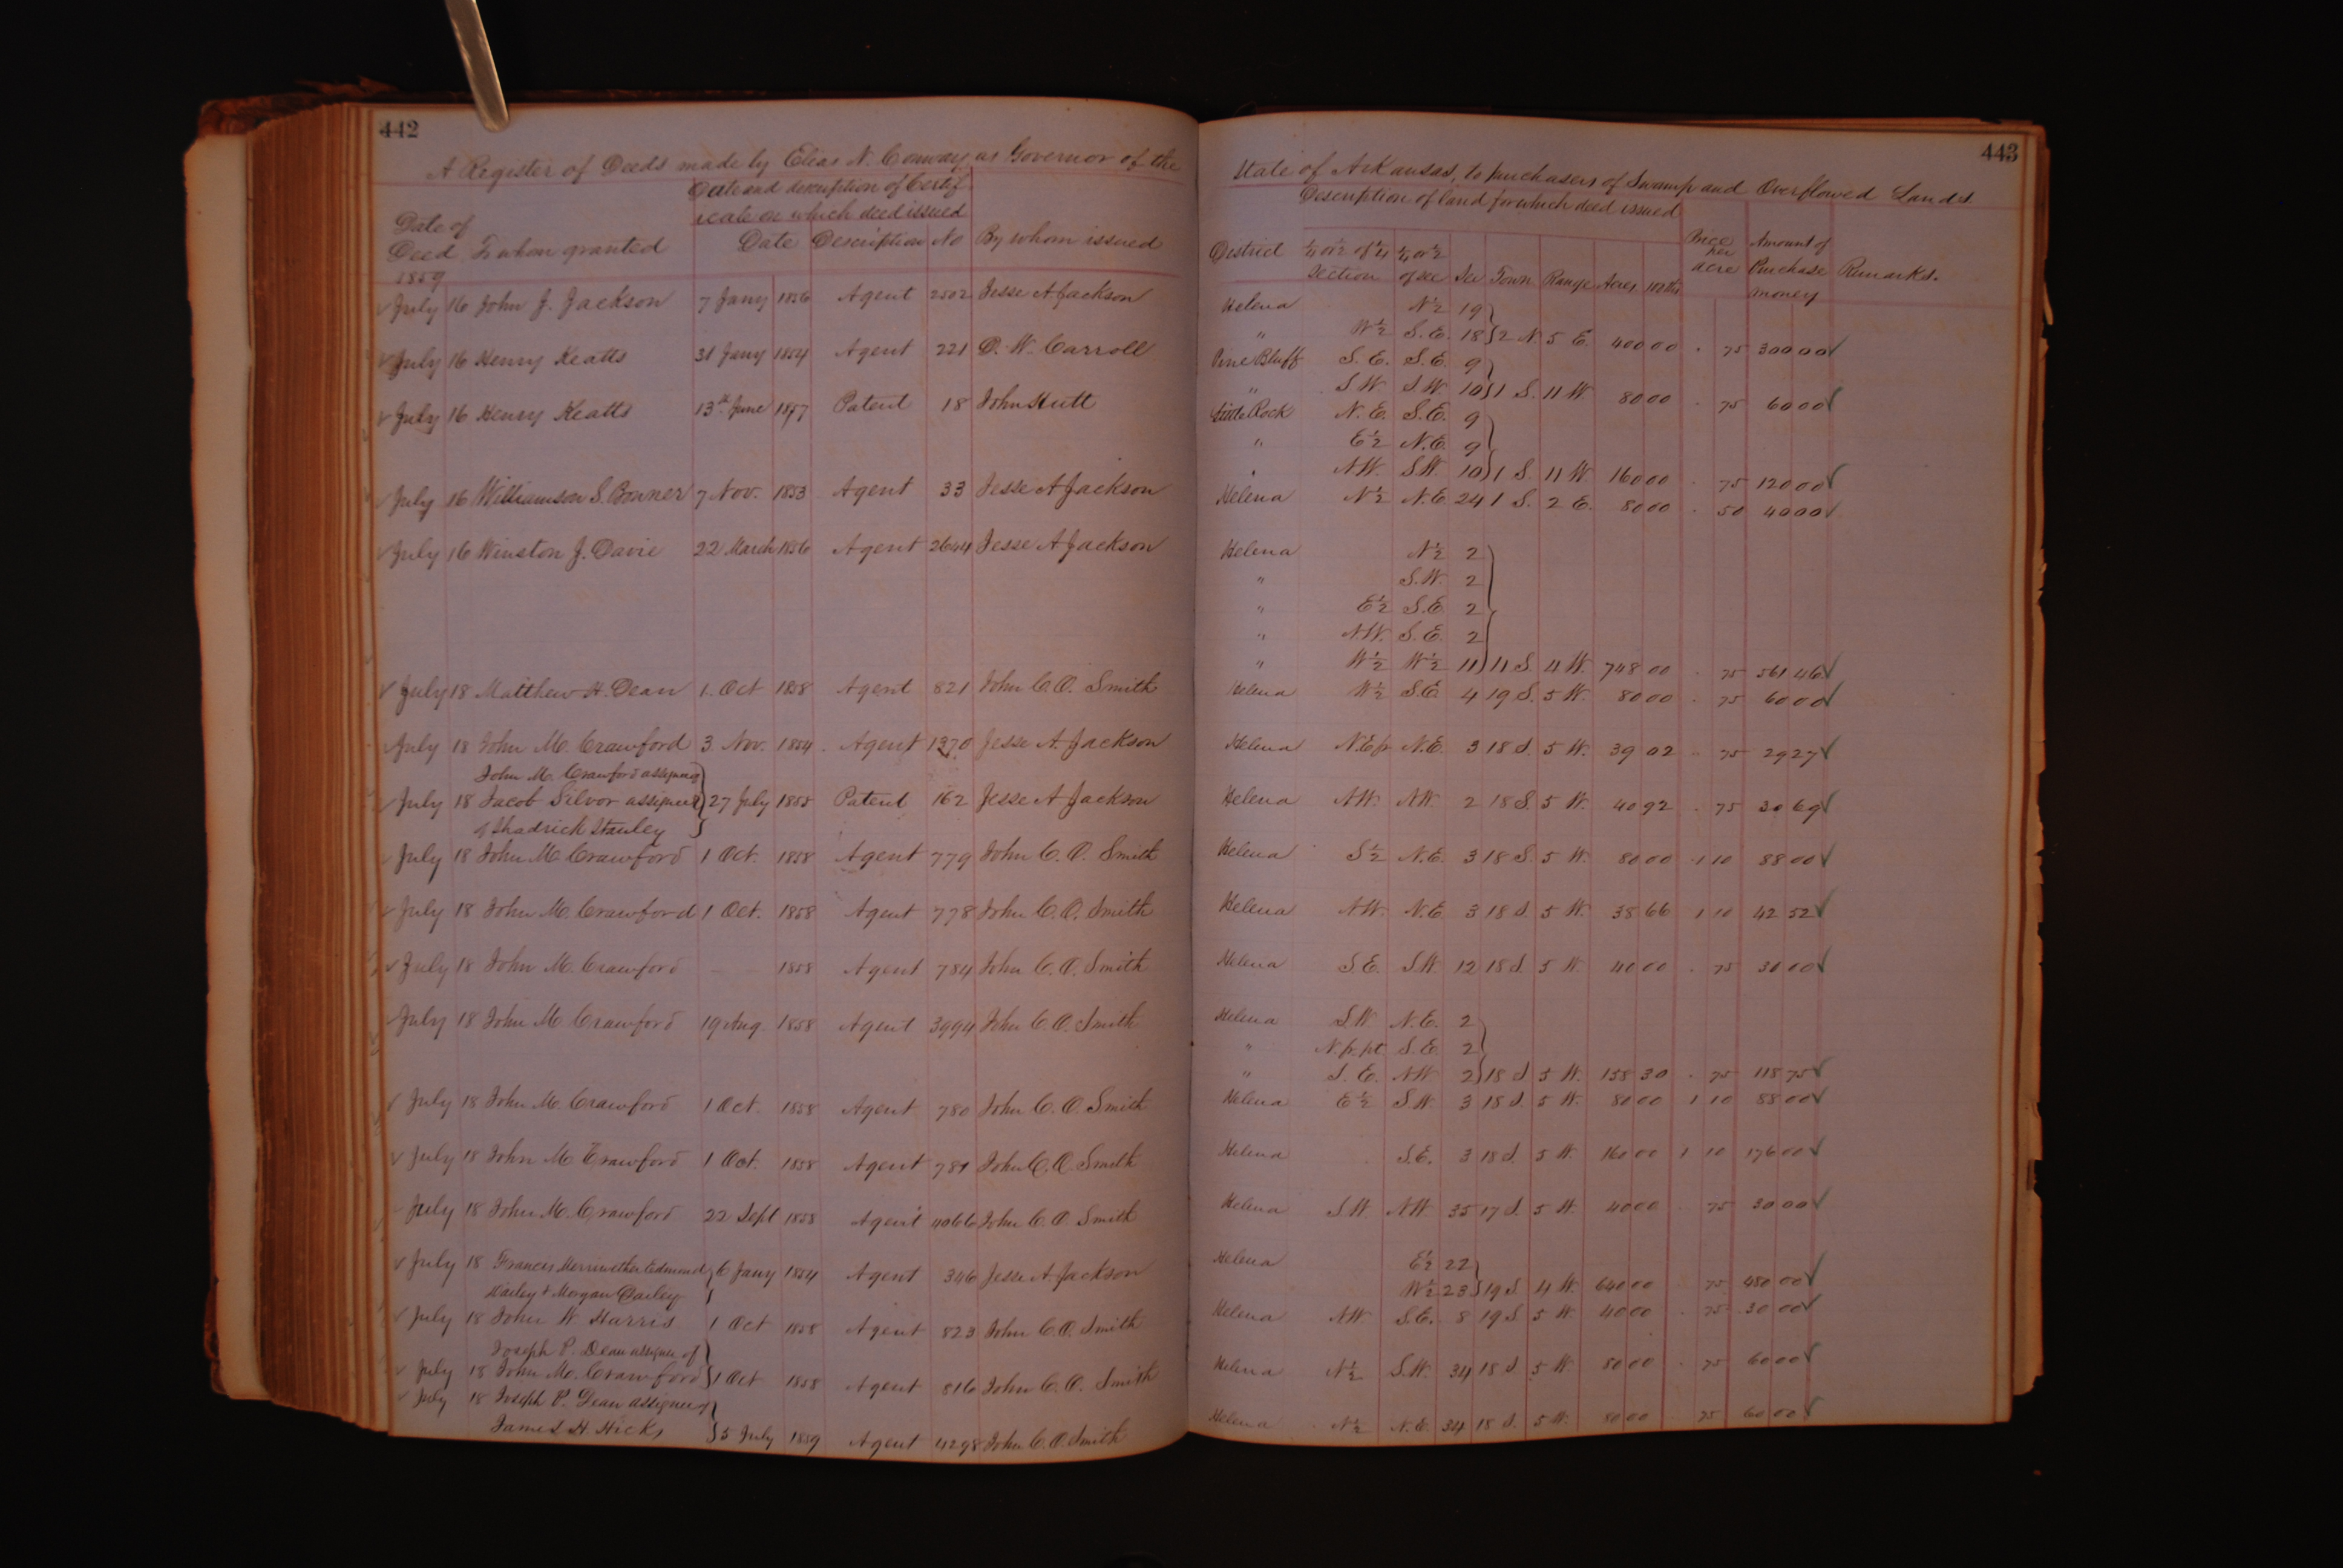 442
A Register of Deeds made by Elias N. Conway as Governor of the
Date and description of Certif-
icate on which deed issued
Date of
Deed To whom granted Date Description No By whom issued
1859
July 16 John J. Jackson 7 Jany 1856 Agent 2502 Jesse A. Jackson
July 16 Henry Keatts 31 Jany 1854 Agent 221 D. W. Carroll
July 16 Henry Keatts 13th June 1857 Patent 18 John Hutt
July 16 Williamson S. Bonner 7 Nov. 1853 Agent 33 Jesse A Jackson
July 16 Winston J. Davie 22 March 1856 Agent 2644 Jesse A Jackson
July 18 Matthew H. Dean 1. Oct 1858 Agent 821 John C. O. Smith
July 18 John M. Crawford 3 Nov. 1854 Agent 1370 Jesse A. Jackson
John M. Crawford assignee
July 18 Jacob Silvor assignee 27 July 1855 Patent 162 Jesse A Jackson
of Shadrick Stanley
July 18 John M. Crawford 1 Oct. 1858 Agent 779 John C. O. Smith
July 18 John M. Crawford 1 Oct. 1858 Agent 778 John C. O. Smith
July 18 John M. Crawford 1858 Agent 784 John C. O. Smith
July 18 John M. Crawford 19 Aug. 1858 Agent 3994 John C. O. Smith
July 18 John M. Crawford 1 Oct. 1858 Agent 780 John C. O. Smith
July 18 John M. Crawford 1 Oct. 1858 Agent 781 John C. O. Smith
July 18 John M. Crawford 22 Sept 1858 Agent 4066 John C. O. Smith
July 18 Francis Merriwether Edmond 6 Jany 1854 Agent 346 Jesse A. Jackson
Dailey & Morgan Dailey
July 18 John W Harris 1 Oct 1858 Agent 823 John C. O. Smith
Joseph P. Dean assignee of
July 18 John M. Crawford 1 Oct 1858 Agent 816 John C. O. Smith
July 18 Joseph P. Dean assignee of
James H. Hicks 5 July 1859 Agent 4298 John C. O. Smith
443
State of Arkansas, to purchasers of Swamp and Overflowed Lands
Description of land for which deed issued
District ¼ or ½ of ¼ ¼ or ½ Price per acre Amount of
section of sec Sec Town Range Acres 100ths Purchase Remarks.
money
Helena N½ 19
" W½ S.E. 18 2 N. 5 E. 400 00 . 75 300 00
Pine Bluff S.E. S.E. 9
" S.W. S.W. 10 1 S. 11 W. 80 00 . 75 60 00
Little Rock N.E. S.E. 9
" E½ N.E. 9
" N.W. S.W. 10 1 S. 11 W. 160 00 . 75 120 00
Helena N½ N.E. 24 1 S. 2 E. 80 00 . 50 40 00
Helena N½ 2
" S.W. 2
" E½ S.E. 2
" N.W. S.E. 2
" W½ W½ 11 11 S. 4 W. 748 00 . 75 561 46
Helena W½ S.E. 4 19 S. 5 W. 80 00 . 75 60 00
Helena N.E fr N.E. 3 18 S. 5 W. 39 02 . 75 29 27
Helena N.W. N.W. 2 18 S. 5 W. 40 92 . 75 30 69
Helena S½ N.E. 3 18 S. 5 W. 80 00 1 10 88 00
Helena N.W. N.E. 3 18 S. 5 W. 38 66 1 10 42 52
Helena S.E. S.W. 12 18 S. 5 W. 40 00 . 75 30 00
Helena S.W. N.E. 2
" N. fr. pt S.E. 2
" S.E. N.W. 2 18 S 5 W. 158 30 . 75 118 75
Helena E½ S.W. 3 18 S. 5 W. 80 00 1 10 88 00
Helena S.E. 3 18 S. 5 W. 160 00 1 10 176 00
Helena S.W. N.W. 35 17 S. 5 W. 40 00 . 75 30 00
Helena E½ 22
W½ 23 19 S. 4 W. 640 00 . 75 480 00
Helena N.W. S.E. 8 19 S. 5 W. 40 00 . 75 30 00
Helena N½ S.W. 34 18 S. 5 W. 80 00 . 75 60 00
Helena N½ N.E. 34 18 S. 5 W. 80 00 . 75 60 00